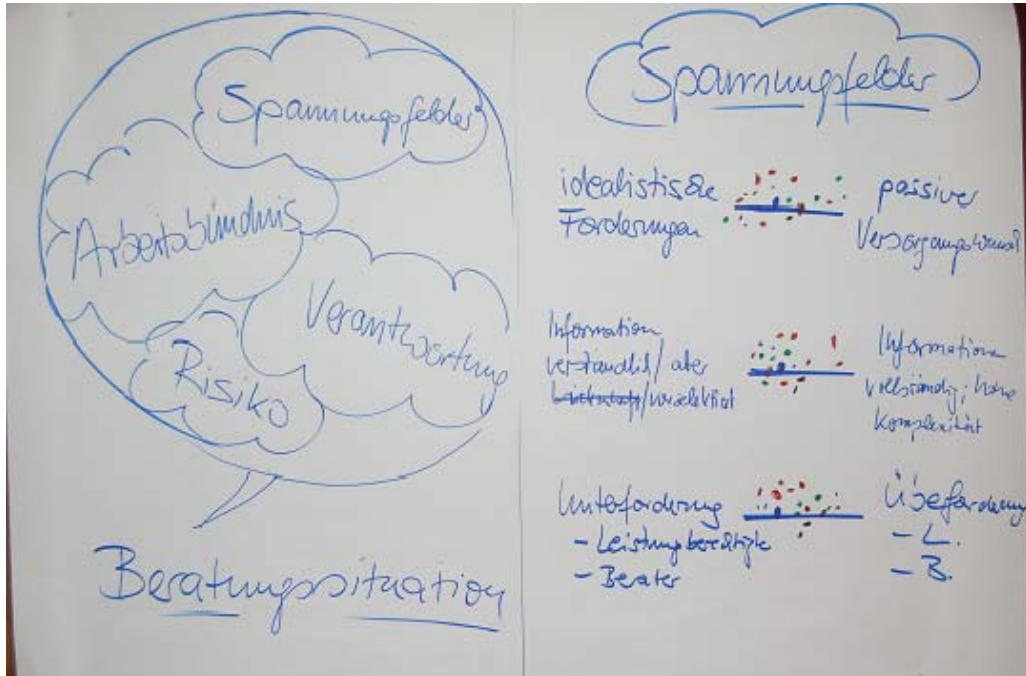 Spannungsfelder
Arbeitsbündnis
Verantwortung
Risiko
Beratungssituation
Spannungsfelder
idealistische
Forderungen
passiver
Versorgungswunsch
Information
verständlich/ aber
/vorselektiert
Information
vollständig; hohe
Komplexität
Unterforderung
- Leistungsberechtigte
- Berater
Überforderung
- L.
- B.